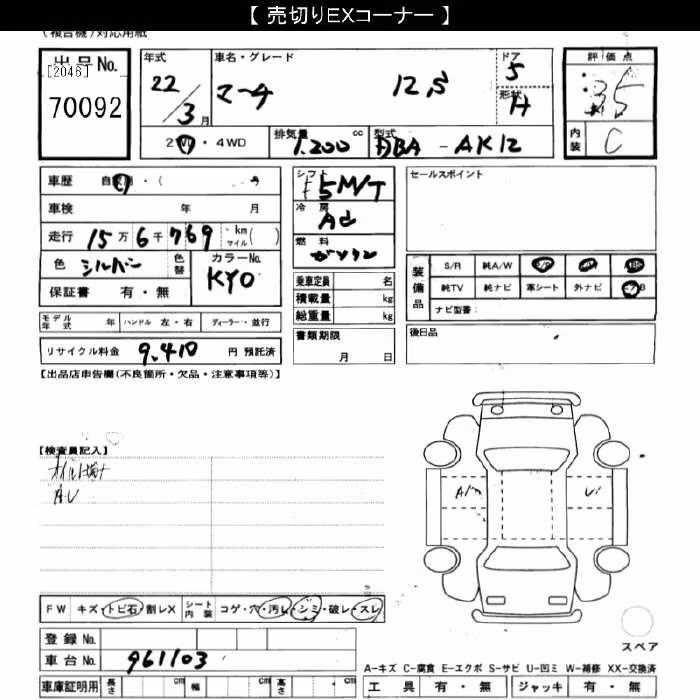 【 売切りEXコーナー 】
(複合機)対応用紙
出品No.
[2046]
70092
年式
22/3月
車名・グレード
マーチ 12S
ドア
5
形状
H
評価点
3.5
内装
C
2WD・4WD
排気量
1.200 cc
型式
DBA - AK12
車歴 自家用・(
車検 年 月
走行 15万6千769 km マイル( )
色 シルバー 色替
カラーNo.
KY0
保証書 有・無
モデル年式 年 ハンドル 左・右 ディーラー・並行
リサイクル料金 9.410 円 預託済
シフト
F5M/T
冷房
AC
燃料
ガソリン
乗車定員 名
積載量 kg
総重量 kg
書類期限
月 日
セールスポイント
装備品
S/R 純A/W
純TV 純ナビ 革シート 外ナビ
ナビ型番:
後日品
【出品店申告欄(不良箇所・欠品・注意事項等)】
【検査員記入】
FW キズ・トビ石・割レX シート内装 コゲ・穴・汚レ・シミ・破レ・スレ
登録No.
車台No. 961103
車庫証明用 長さ cm 幅 cm 高さ cm
スペア
A-キズ C-腐食 E-エクボ S-サビ U-凹ミ W-補修 XX-交換済
工具 有・無 ジャッキ 有・無